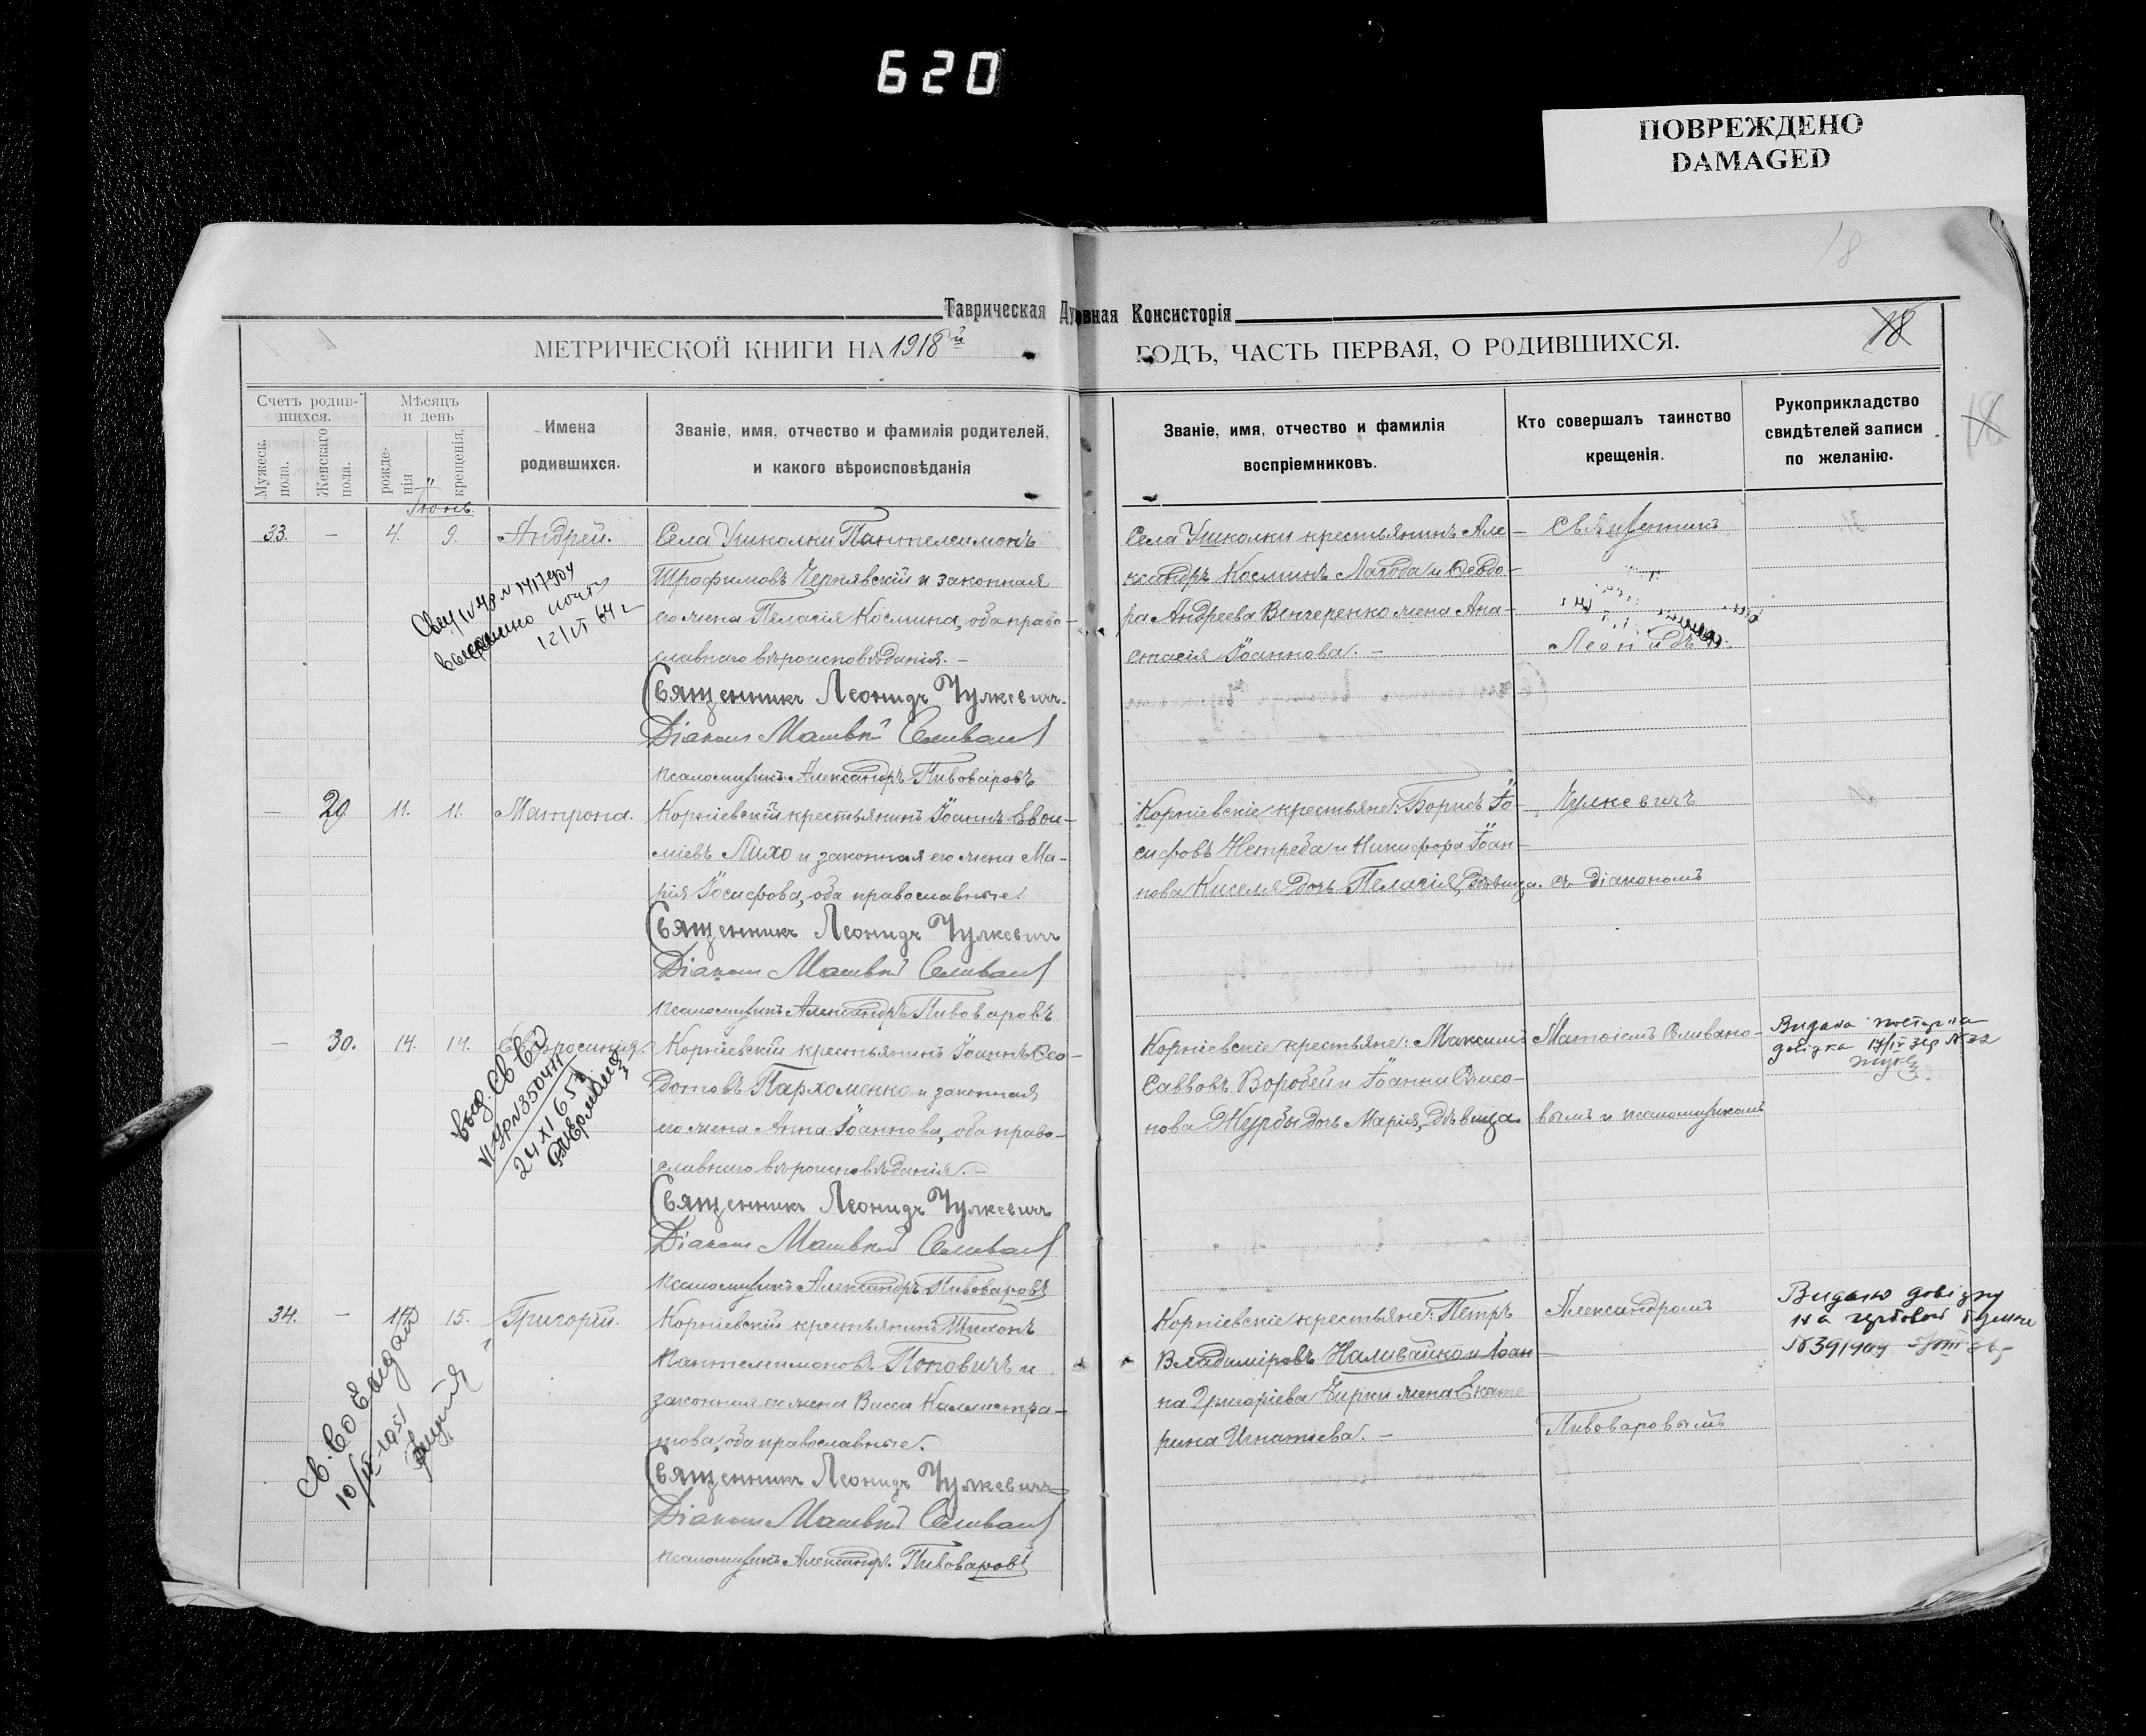 620
ПОВРЕЖДЕНО
DAMAGED
18
Таврическая Духовная Консисторія
МЕТРИЧЕСКОЙ КНИГИ НА 1918й ГОДЪ, ЧАСТЬ ПЕРВАЯ, О РОДИВШИХСЯ.
18
18
Счетъ родив-
шихся.
Мужеск. пола.
Женскаго пола.
Мѣсяцъ
и день
рожде-
нія
крещенія.
Имена
родившихся.
Званіе, имя, отчество и фамилія родителей,
и какого вѣроисповѣданія
Званіе, имя, отчество и фамилія
воспріемниковъ.
Кто совершалъ таинство
крещенія.
Рукоприкладство
свидѣтелей записи
по желанію.
Іюнь
33. — 4. 9. Андрей.
Села Ушколки Пантелеимонъ
Трофимовъ Чернявскій и законная
его жена Пелагія Космина, оба право-
славнаго вѣроисповѣданія. —
Священникъ Леонидъ Чулкевичъ.
Діаконъ Матвѣй Селиванов
Псаломщикъ Александръ Пивоваровъ
Села Ушколки крестьянинъ Але-
ксандръ Косминъ Лагода и Ѳеодо-
ра Андреева Венгеренко жена Ана-
стасія Іоаннова. —
Священникъ
Леонидъ
12/VI 64 г
— 29. 11. 11. Матрона.
Корніевскій крестьянинъ Іоаннъ Евѳи-
міевъ Лихо и законная его жена Ма-
рія Іосифова, оба православные.
Священникъ Леонидъ Чулкевичъ
Діаконъ Матвѣй Селиванов
Псаломщикъ Александръ Пивоваровъ
Корніевскіе крестьяне: Борисъ Іо-
сифовъ Нетреба и Никифора Іоан-
нова Киселя дочь Пелагія, дѣвица.
Чулкевичъ
съ діакономъ
— 30. 14. 14. Евфросинія.
Корніевскій крестьянинъ Іоаннъ Ѳео-
дотовъ Пархоменко и законная
его жена Анна Іоаннова, оба право-
славнаго вѣроисповѣданія. —
Священникъ Леонидъ Чулкевичъ
Діаконъ Матвѣй Селиванов
Псаломщикъ Александръ Пивоваровъ
Корніевскіе крестьяне: Максимъ
Саввовъ Воробей и Іоанна Симео-
нова Журбы дочь Марія, дѣвица.
Матѳіемъ Селивано-
вымъ и псаломщикомъ
выд. Св во
VI УР № 35041
24 XI 65 г
34. — 14. 15. Григорій.
Корніевскій крестьянинъ Тихонъ
Пантелеимоновъ Поповичъ и
законная его жена Васса Каллистра-
това, оба православные.
Священникъ Леонидъ Чулкевичъ
Діаконъ Матвѣй Селиванов
Псаломщикъ Александръ Пивоваровъ
Корніевскіе крестьяне: Петръ
Владиміровъ Наливайко и Іоан-
на Григоріева Чирки жена Екате-
рина Игнатіева. —
Александромъ
Пивоваровымъ
Видано довідку
на гербовой
№ 391909
Св. во видат